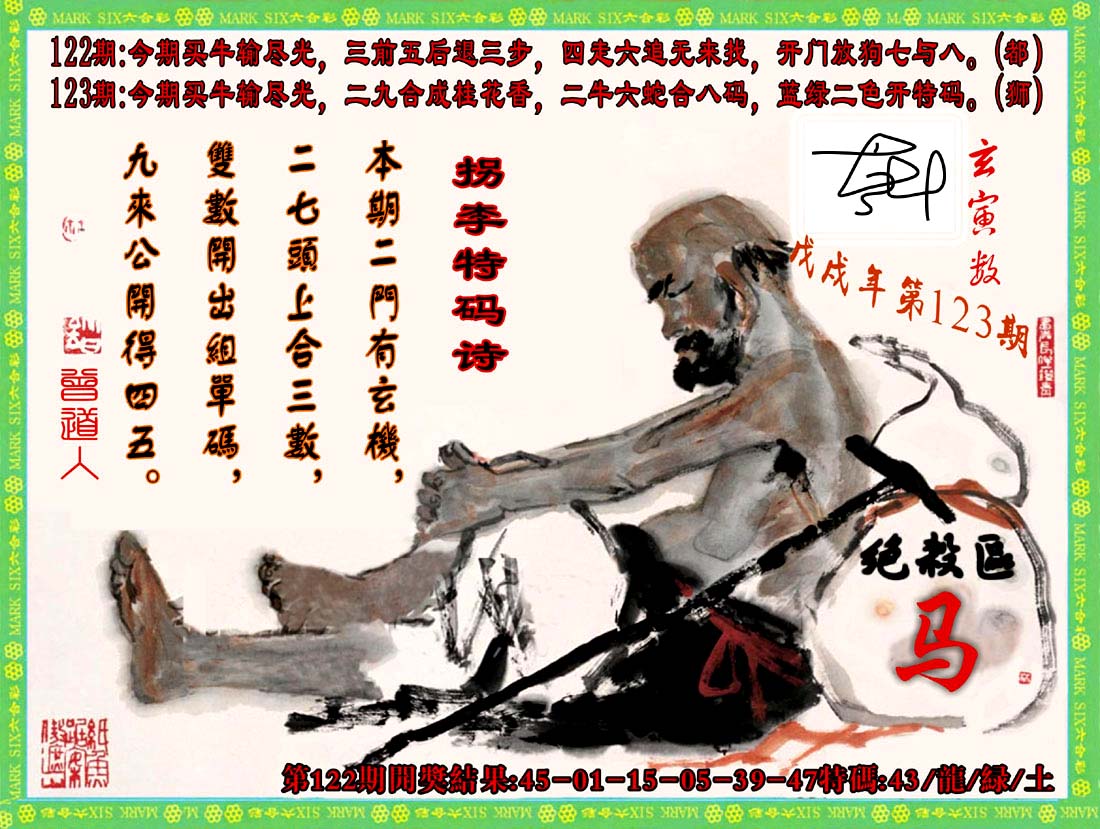 MARK SIX六合彩
122期:今期买牛输尽光，三前五后退三步，四走六追无来找，开门放狗七与八。(都)
123期:今期买牛输尽光，二九合成桂花香，二牛六蛇合八码，蓝绿二色开特码。(狮)
玄寅数
戊戌年第123期
拐李特码诗
本期二門有玄機，
二七頭上合三數，
雙數開出組單碼，
九來公開得四五。
曾道人
绝殺區
马
第122期開獎結果:45-01-15-05-39-47特碼:43/龍/緑/土